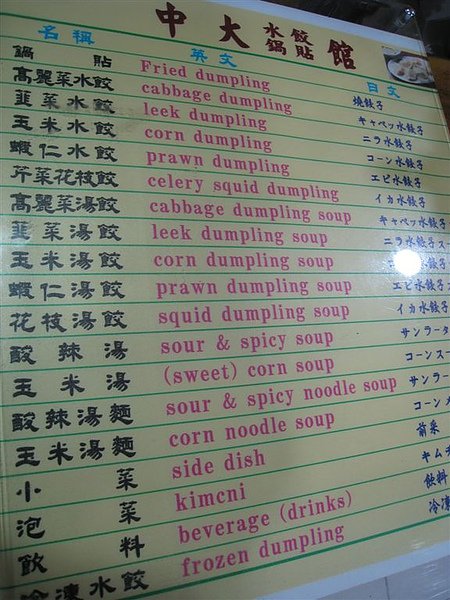 中大水餃鍋貼館
名稱 英文 日文
鍋貼 Fried dumpling 燒餃子
高麗菜水餃 cabbage dumpling キャベッ水餃子
韮菜水餃 leek dumpling ニラ水餃子
玉米水餃 corn dumpling コーン水餃子
蝦仁水餃 prawn dumpling エビ水餃子
芹菜花枝餃 celery squid dumpling イカ水餃子
高麗菜湯餃 cabbage dumpling soup キャベッ水餃子
韮菜湯餃 leek dumpling soup ニラ水餃子スー
玉米湯餃 corn dumpling soup 水餃子
蝦仁湯餃 prawn dumpling soup エビ水餃子ス
花枝湯餃 squid dumpling soup イカ水餃子
酸辣湯 sour & spicy soup サンラータ
玉米湯 (sweet) corn soup コーンスー
酸辣湯麵 sour & spicy noodle soup サンラー
玉米湯麵 corn noodle soup コーン
小菜 side dish 前菜
泡菜 kimcni キム
飲料 beverage (drinks) 飲料
冷凍水餃 frozen dumpling 冷凍